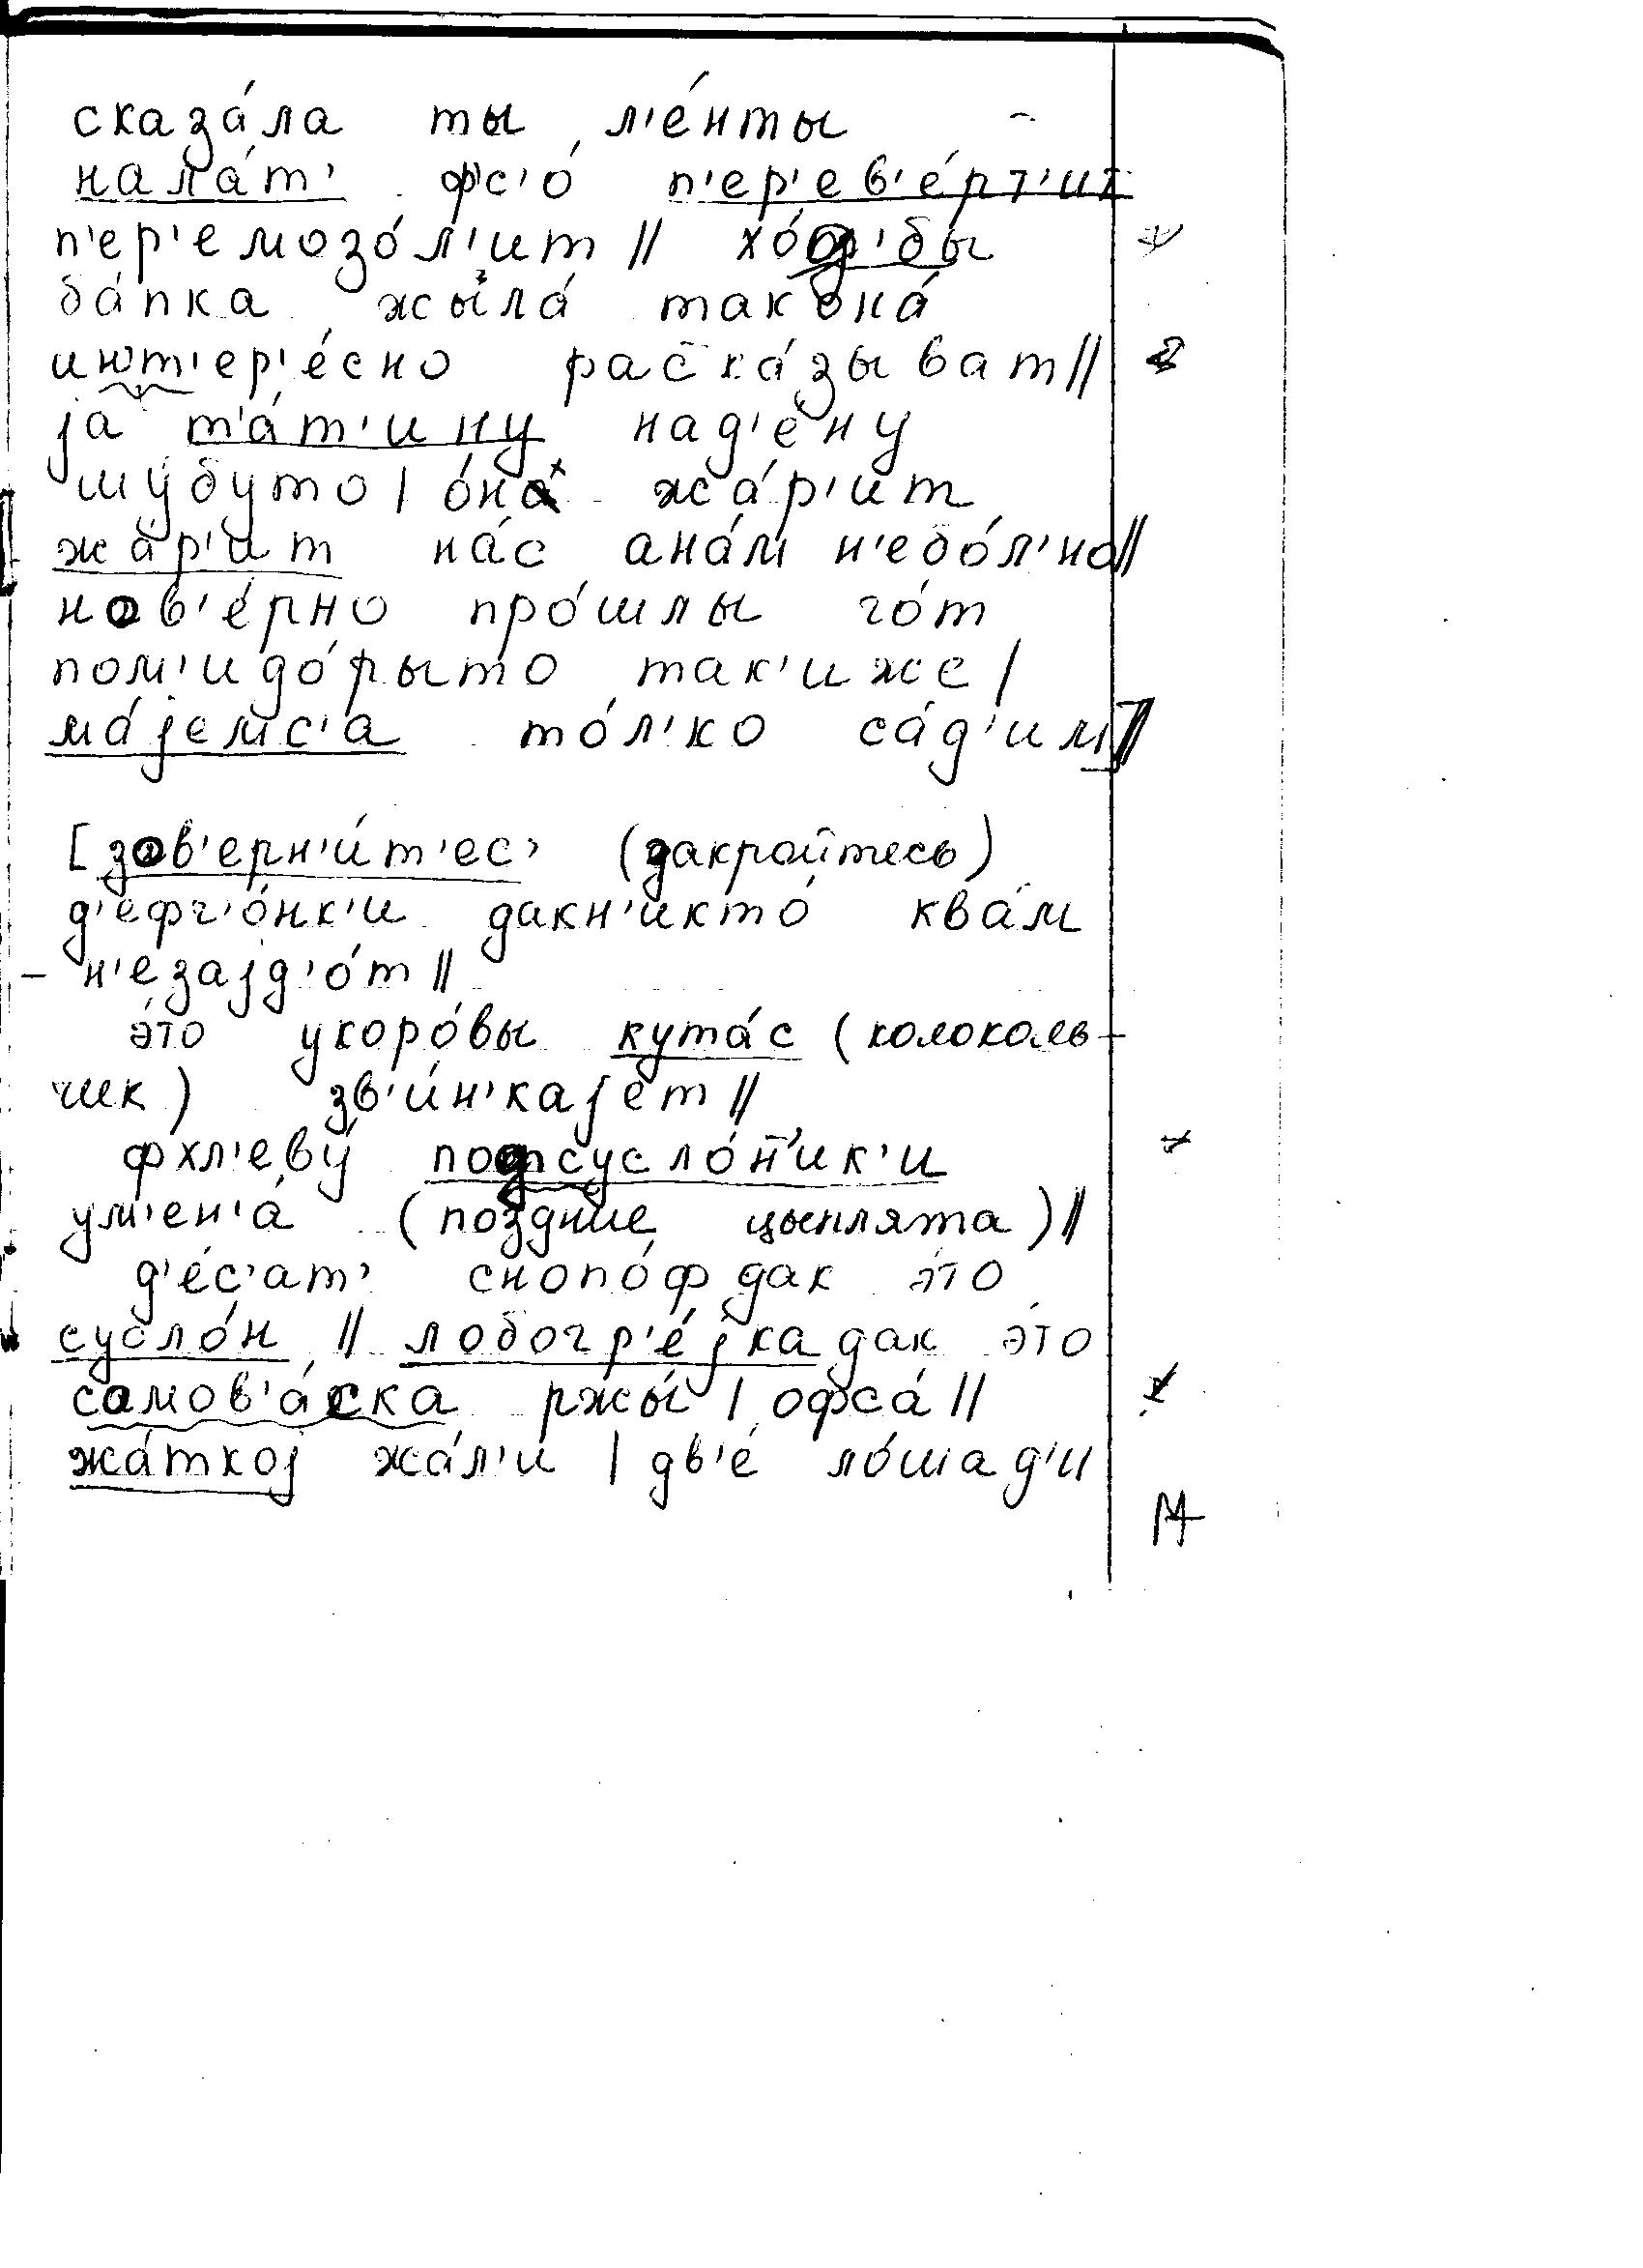 сказа́ла ты л'е́нты
нала́т' фс'о́ п'ер'ев'е́рт'ит
п'ер'емозо́л'ит || хо́д'бы
ба́пка жыла́ так она́
инт'ер'е́сно раска́зыват ||
jа т'а́т'ину над'е́ну
шу́буто | о́на жа́р'ит
жа́р'ит на́с ана́м н'ебо́л'но ||
нов'е́рно про́шлы го́т
пом'идо́рыто так'иже |
ма́jемс'а то́л'ко са́д'им ||
[зав'ерн'и́т'ес' (закройтесь)
д'ефч'о́нк'и дакн'икто́ ква́м
н'езаjд'о́т ||
э́то укоро́вы кута́с (колоколь-
чик) зв'и́н'каjет ||
фхл'еву́ подсусло́н'ик'и
ум'ен'а́ (поздние цыплята) ||
д'е́с'ат' снопо́ф дак э́то
сусло́н || лобогр'е́jка дак э́то
самов'а́ска ржы́ | офса́ ||
жа́ткоj жа́л'и | дв'е́ ло́шад'и